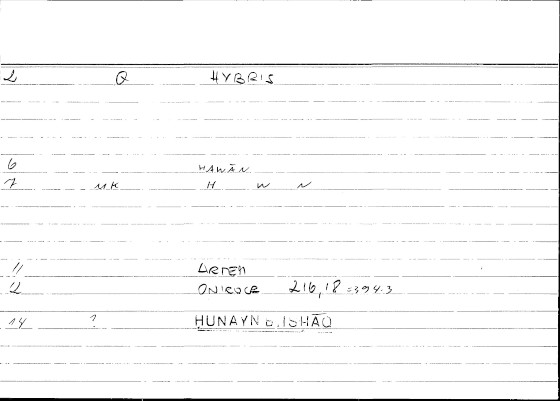 2 Q HYBRIS
6 HAWĀN
7 MK H W N
11 ARTEM
12 ONIROCR 216,18 = 394.3
14 ? HUNAYN b. ISHĀQ